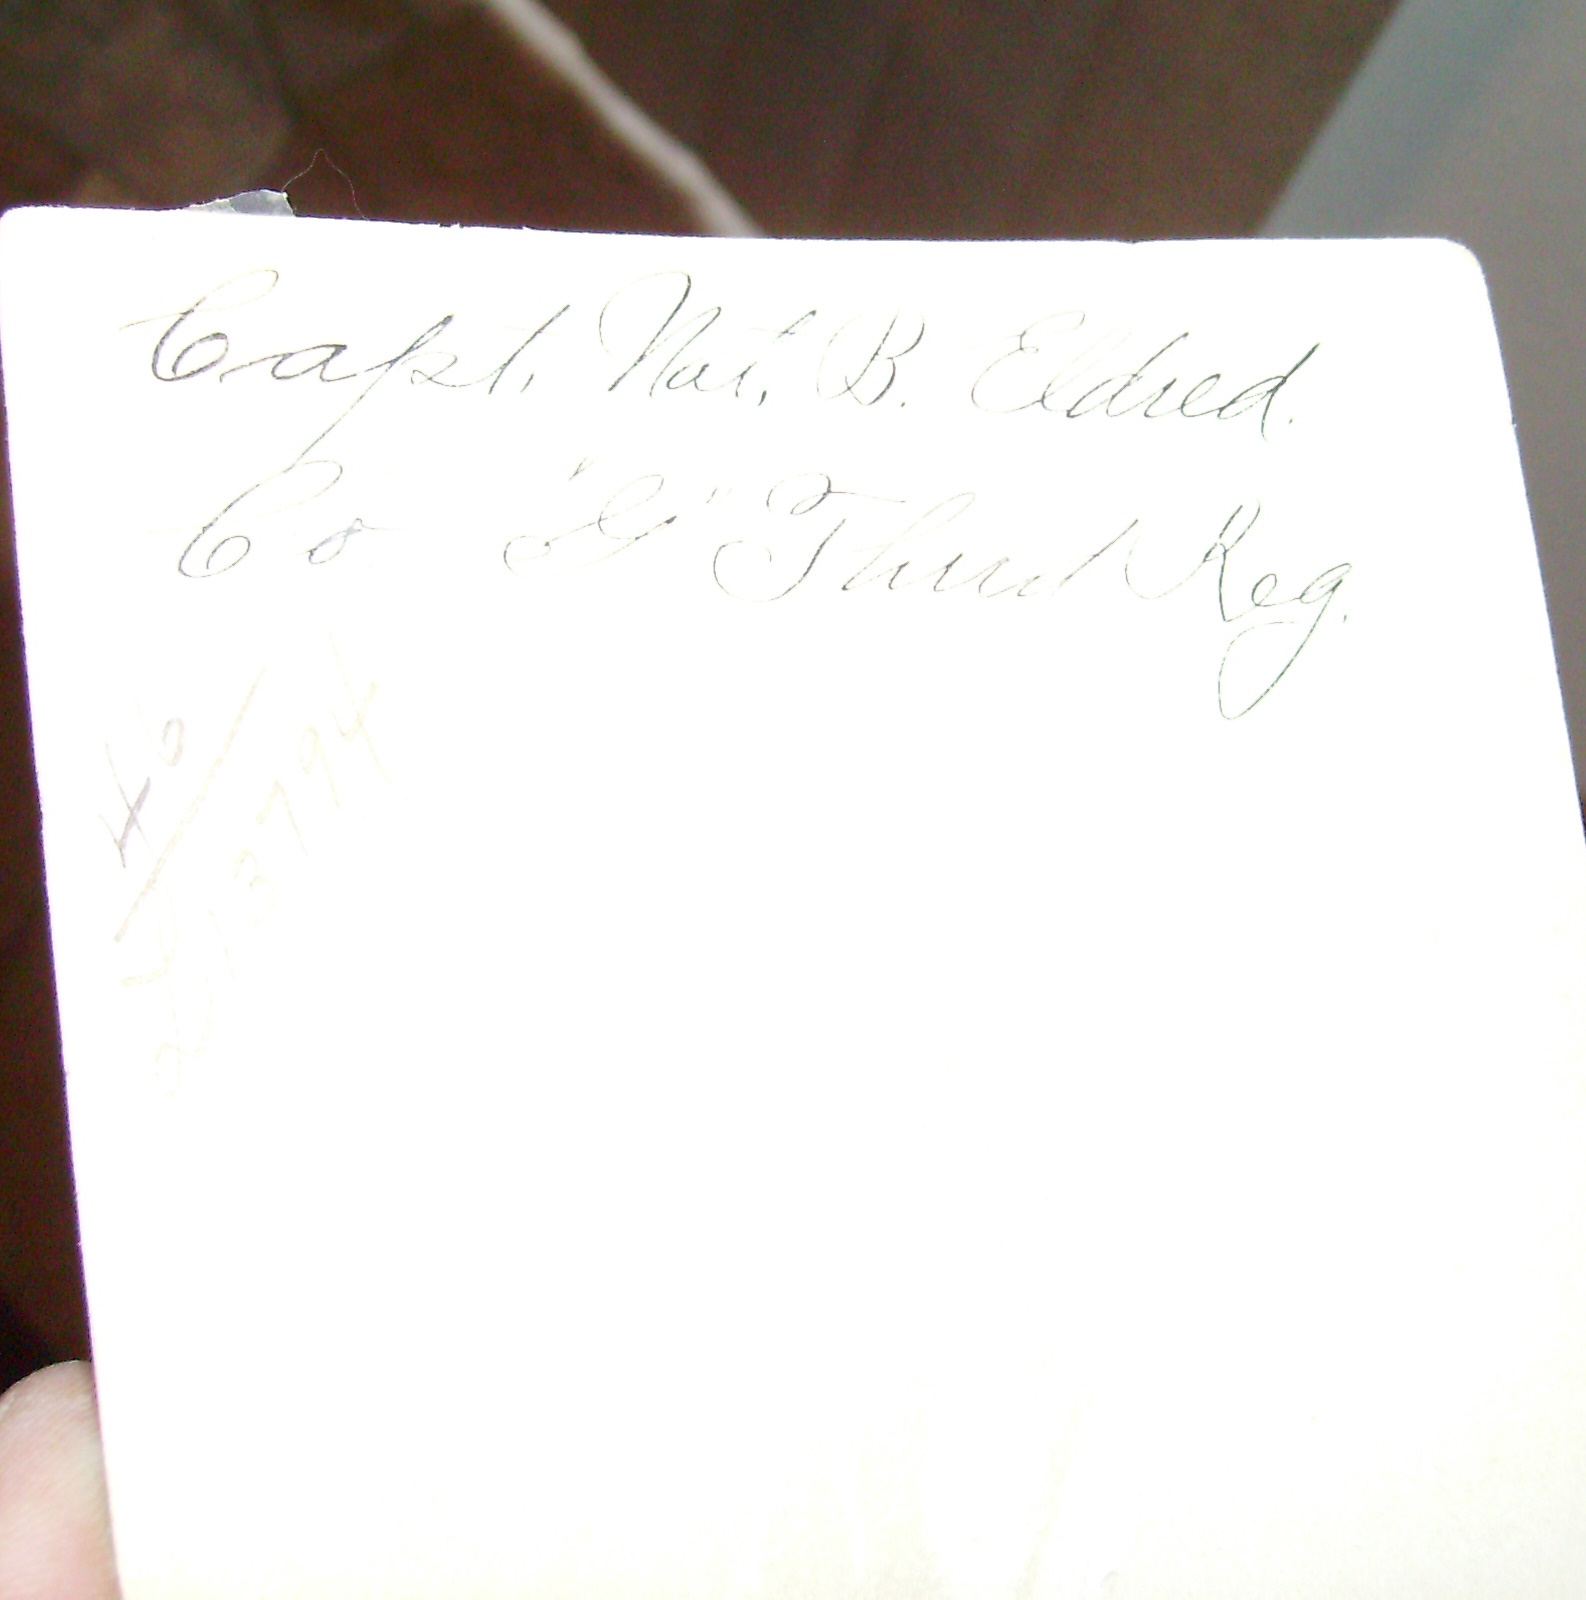 Capt. Nat. B. Eldred.
Co "G" Third Reg.